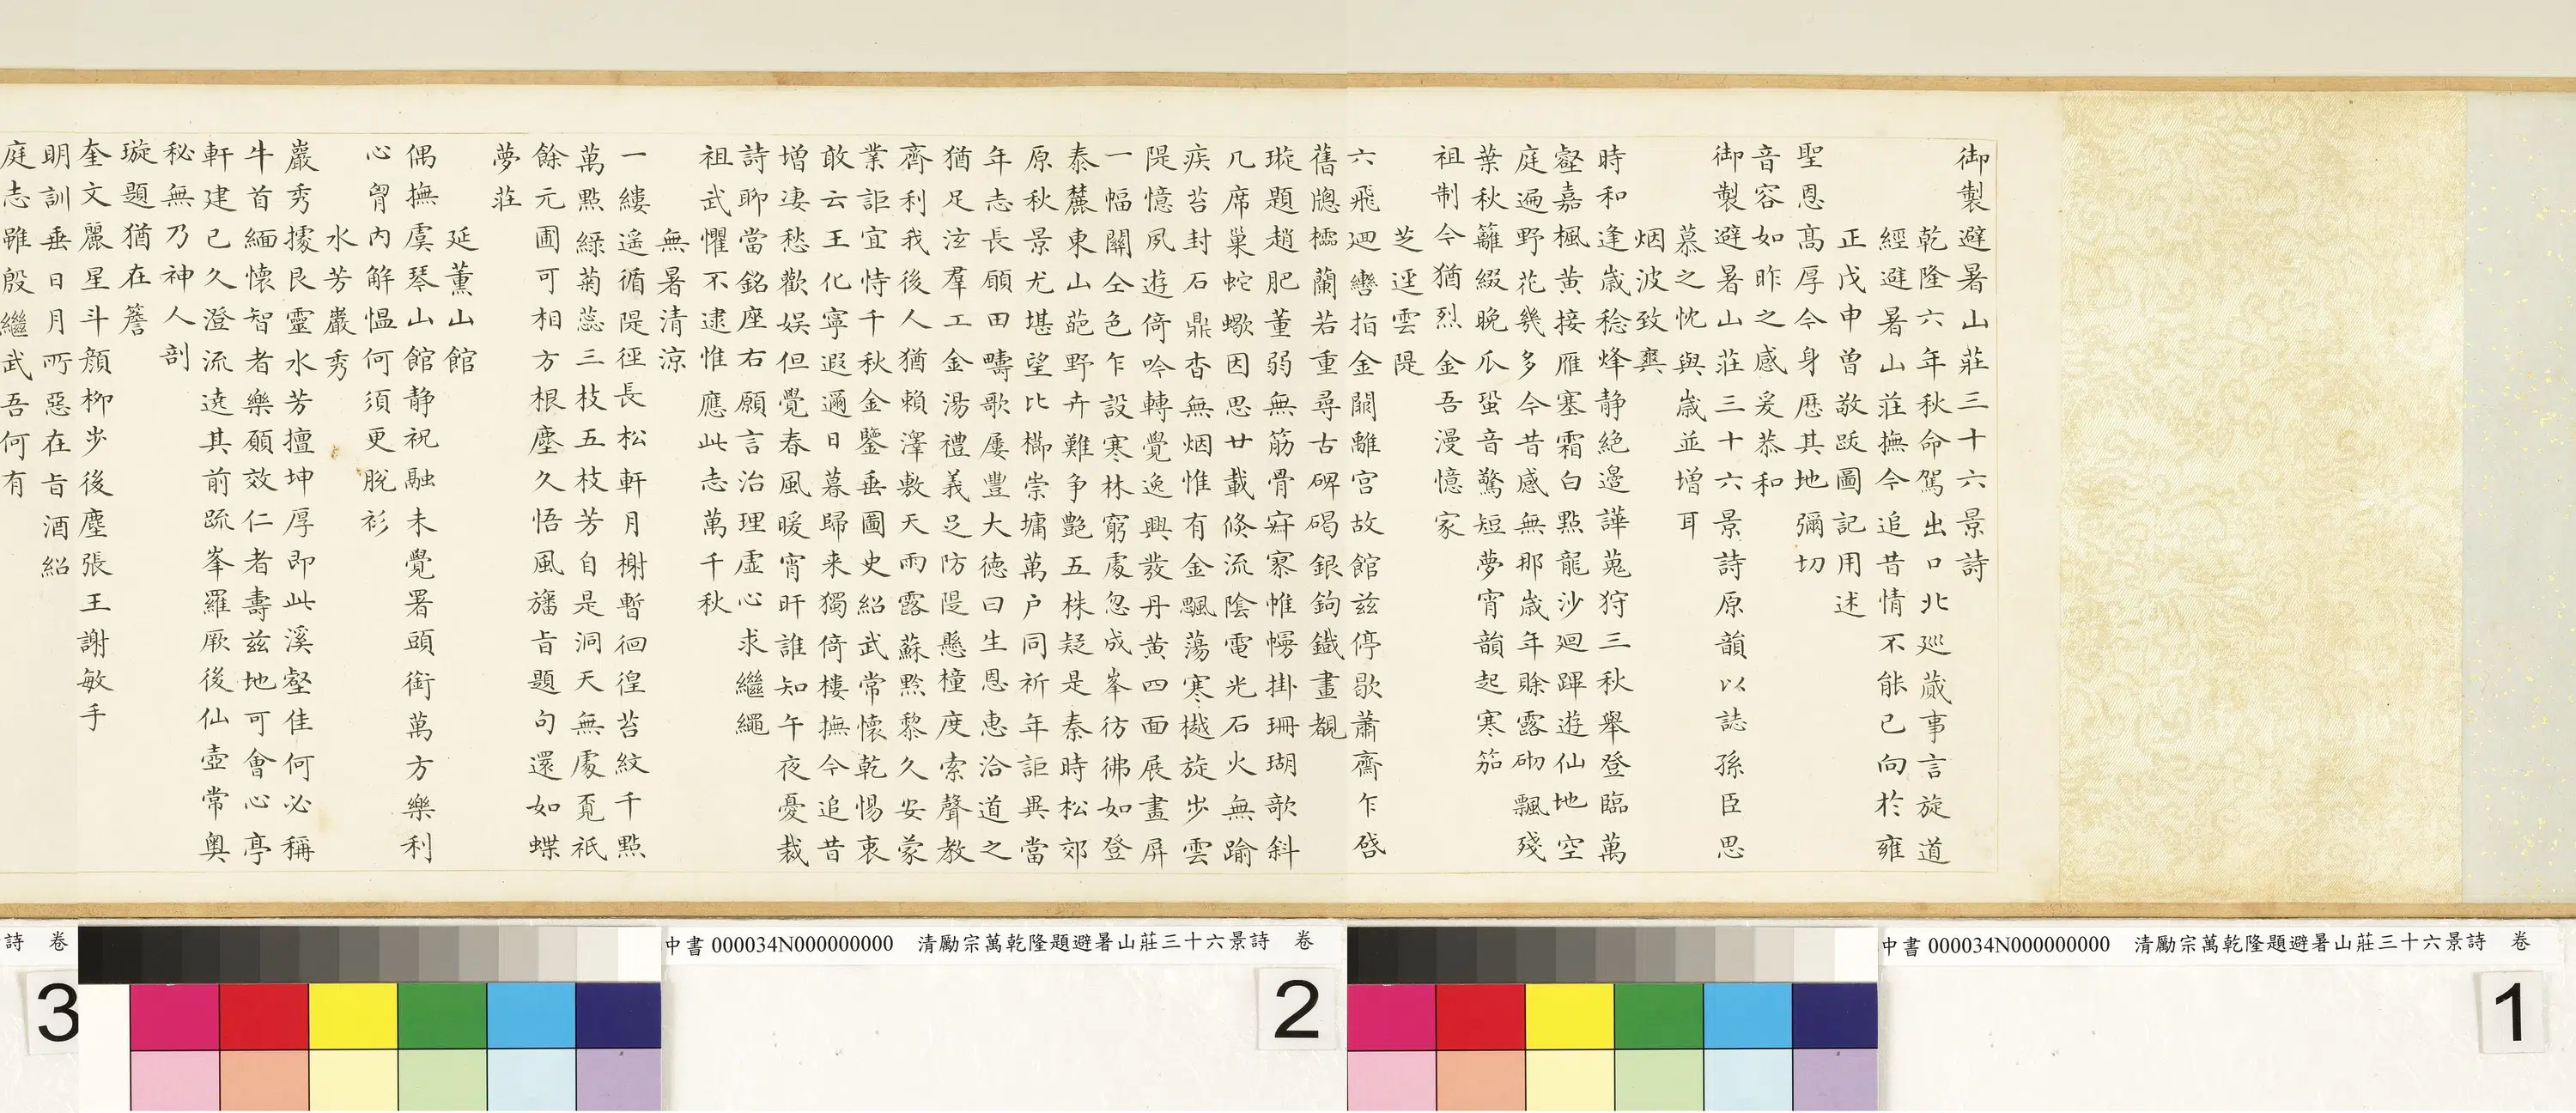 御製避暑山莊三十六景詩
乾隆六年秋命駕出口北巡蕆事言旋道
經避暑山莊撫今追昔情不能已向於雍
正戊申曾敬跋圖記用述
聖恩高厚今身歷其地彌切
音容如昨之感爰恭和
御製避暑山莊三十六景詩原韻以誌孫臣思
慕之忱與歲並增耳
烟波致爽
時和逢歲稔烽静絶邉譁蒐狩三秋舉登臨萬
壑嘉楓黃接雁塞霜白點龍沙迴蹕遊仙地空
庭遍野花幾多今昔感無那歲年賒露砌飄殘
葉秋籬綴晚瓜蛩音驚短夢宵韻起寒笳
祖制今猶烈金吾漫憶家
芝逕雲隄
六飛迴轡指金闕離宮故館兹停歇蕭齋乍啓
舊牕櫺蘭若重尋古碑碣銀鉤鐵畫覩
璇題趙肥董弱無筋骨寂寞帷幔掛珊瑚歌斜
几席巢蛇蠍因思廿載倐流陰電光石火無踰
疾苔封石鼎杳無烟惟有金飈蕩寒樾旋步雲
隄憶夙遊倚吟轉覺逸興發丹黃四面展畫屏
一幅關仝色乍設寒林窮處忽成峯彷彿如登
泰麓東山葩野卉難争艷五株疑是秦時松郊
原秋景尤堪望比櫛崇墉萬户同祈年詎異當
年志長願田疇歌屢豐大德曰生恩恵洽道之
猶足泣羣工金湯禮義足防隄懸橦度索聲教
齊利我後人猶賴澤敷天雨露蘇黔黎久安蒙
業詎宜恃千秋金鑒垂圖史紹武常懷乾惕衷
敢云王化寧遐邇日暮歸来獨倚樓撫今追昔
增凄愁歡娱但覺春風暖宵旰誰知午夜憂裁
詩聊當銘座右願言治理虛心求繼繩
祖武懼不逮惟應此志萬千秋
無暑清涼
一縷遥循隄徑長松軒月榭暫徊徨苔紋千點
萬點綠菊蕊三枝五枝芳自是洞天無處覔祇
餘元圃可相方根塵久悟風旛旨題句還如蝶
夢莊
延薰山館
偶撫虞琴山館静祝融未覺署頭銜萬方樂利
心胷內解愠何須更脫衫
水芳巖秀
巖秀擾艮靈水芳擅坤厚即此溪壑佳何必稱
牛首緬懷智者樂願效仁者壽兹地可會心亭
軒建已久澄流遶其前疏峯羅厥後仙壺常奧
秘無乃神人剖
璇題猶在簷
奎文麗星斗顔柳步後塵張王謝敏手
明訓垂日月所惡在旨酒紹
庭志雖殷繼武吾何有
中書000034N000000000 清勵宗萬乾隆題避暑山莊三十六景詩 卷
1
中書000034N000000000 清勵宗萬乾隆題避暑山莊三十六景詩 卷
2
詩 卷
3